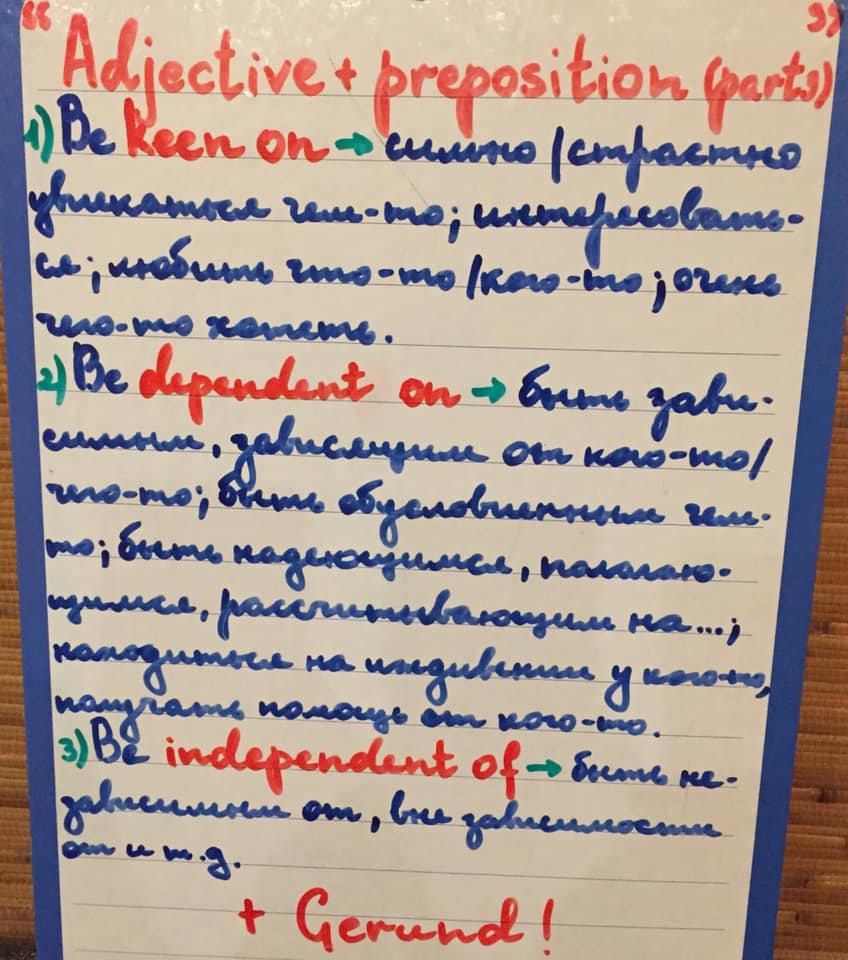 “ Adjective + preposition (part 9) ”
1) Be keen on → сильно / страстно
увлекаться чем-то; интересовать-
ся; любить что-то / кого-то; очень
чего-то хотеть.
2) Be dependent on → быть зави-
симым, зависящим от кого-то/
чего-то; быть обусловленным чем-
то; быть надеющимся, полагаю-
щимся, рассчитывающим на...;
находиться на иждивении у кого-то,
получать помощь от кого-то.
3) Be independent of → быть не-
зависимым от, вне зависимости
от и т.д.
+ Gerund!